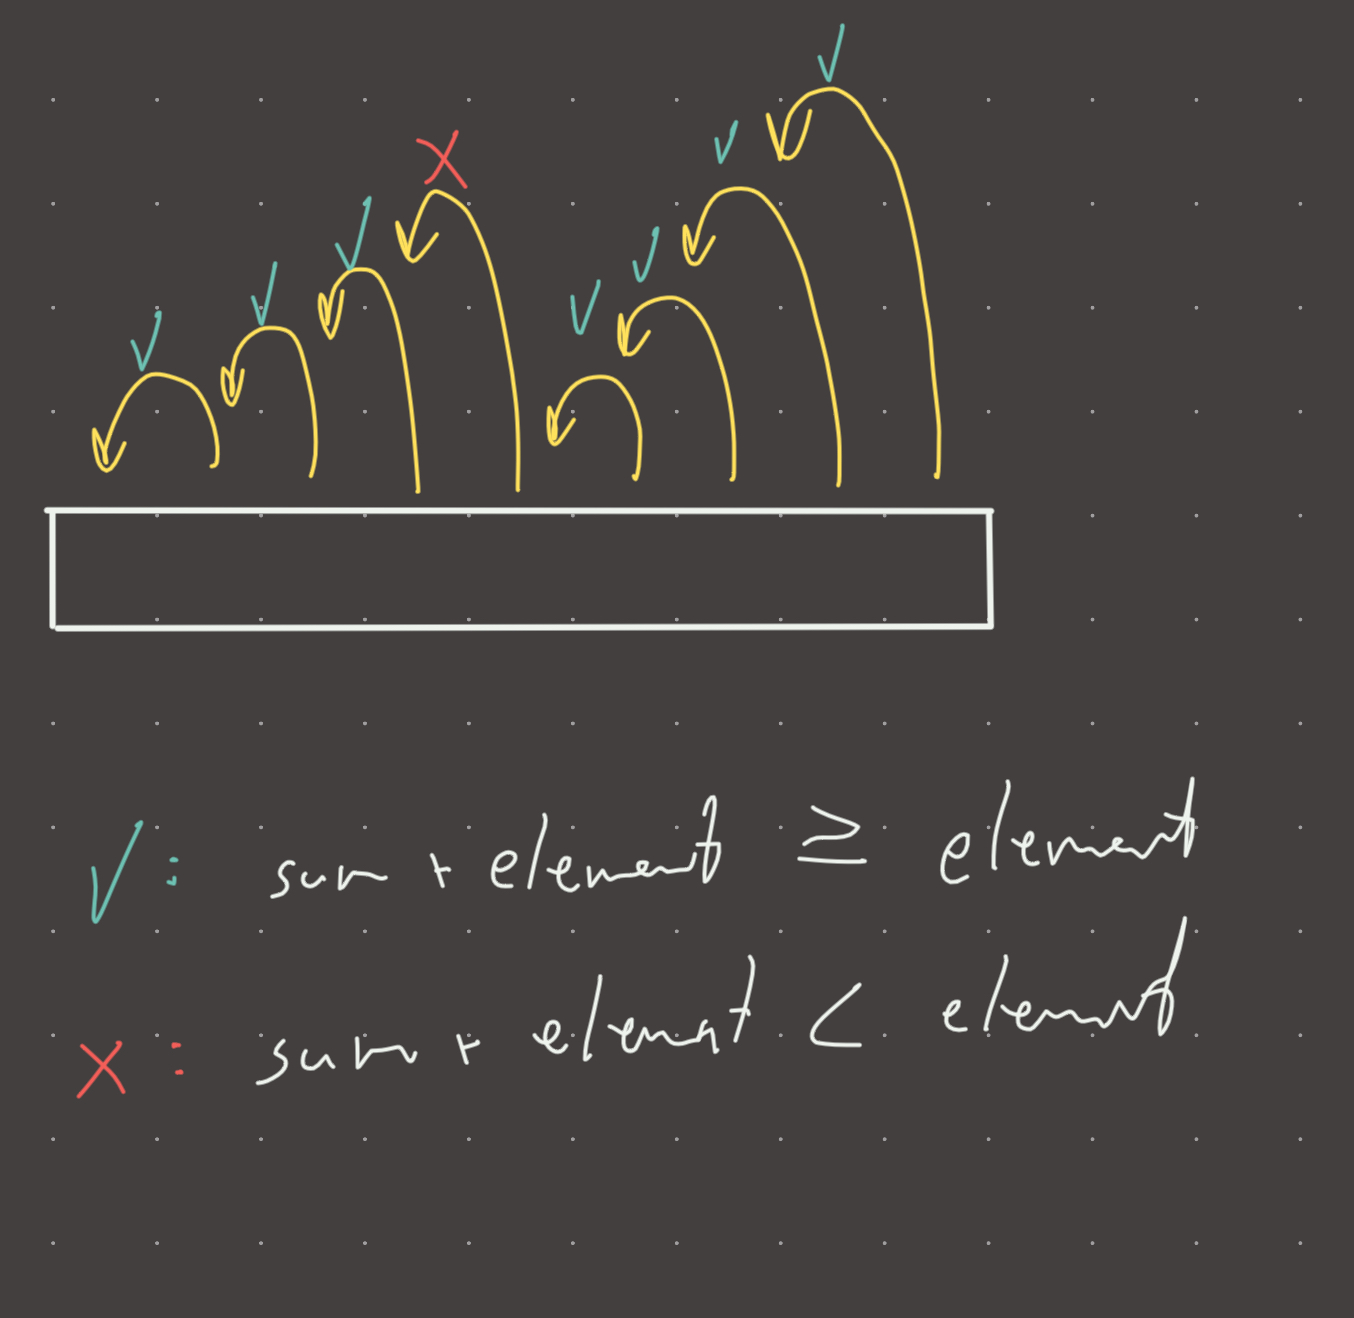 ✓: sum + element ≥ element
X: sum + elemnt < elemnt